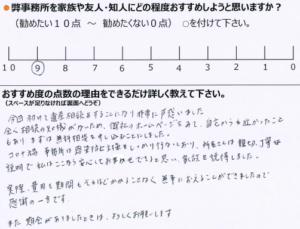 ● 弊事務所を家族や友人・知人にどの程度おすすめしようと思いますか？
（勧めたい１０点 ～ 勧めたくない０点） ○を付けて下さい。
10 9 8 7 6 5 4 3 2 1 0
おすすめ度の点数の理由をできるだけ詳しく教えて下さい。
（スペースが足りなければ裏面へどうぞ）
今回初めて遺産相続をすることになり非常に戸惑いました
ホームページをみて、自宅からも近かったこと
もあり まずは無料相談を申し込むことにしました。
コロナ禍 事務所は
説明で私はここなら安心してお任せできると思い、
実際、費用も期間もそれほどかかることなく 無事に終えることができましたので
感謝の一言です。
また 機会がありましたときは、よろしくお願いします